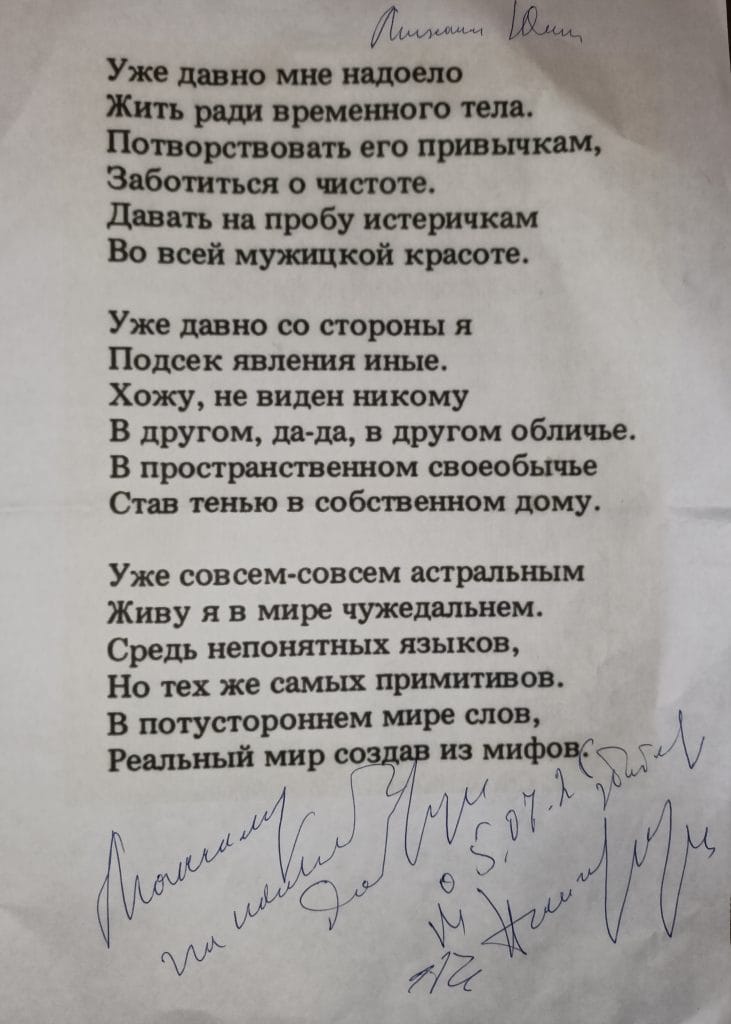 Михаил Юпп
Уже давно мне надоело
Жить ради временного тела.
Потворствовать его привычкам,
Заботиться о чистоте.
Давать на пробу истеричкам
Во всей мужицкой красоте.
Уже давно со стороны я
Подсек явления иные.
Хожу, не виден никому
В другом, да-да, в другом обличье.
В пространственном своеобычье
Став тенью в собственном дому.
Уже совсем-совсем астральным
Живу я в мире чужедальнем.
Средь непонятных языков,
Но тех же самых примитивов.
В потустороннем мире слов,
Реальный мир создав из мифов.
на
5.07.